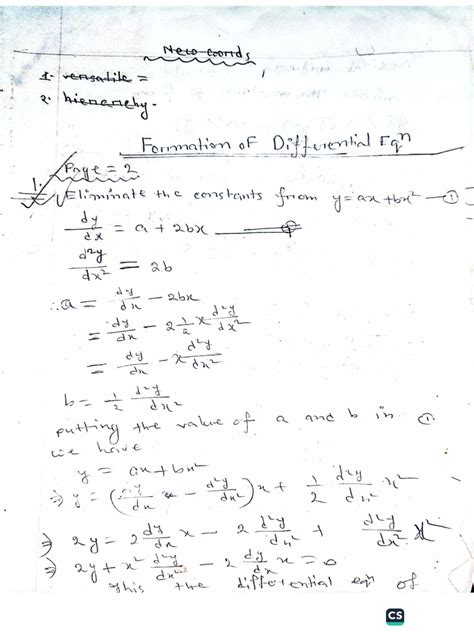 New words
1. versatile =
2. hierarchy -
Formation of Differential Eqⁿ
Page = 2
1. Eliminate the constants from y = ax + bx² — ①
dy/dx = a + 2bx
d²y/dx² = 2b
∴ a = dy/dx - 2bx
= dy/dx - 2 1/2 x d²y/dx²
= dy/dx - x d²y/dx²
b = 1/2 d²y/dx²
putting the value of a and b in ①
we have
y = ax + bx²
⇒ y = (dy/dx - d²y/dx²) x + 1/2 d²y/dx² x²
⇒ 2y = 2 dy/dx x - 2 d²y/dx² + d²y/dx² x²
⇒ 2y + x² d²y/dx² - 2 dy/dx x = 0
This the differential eqⁿ of
CS